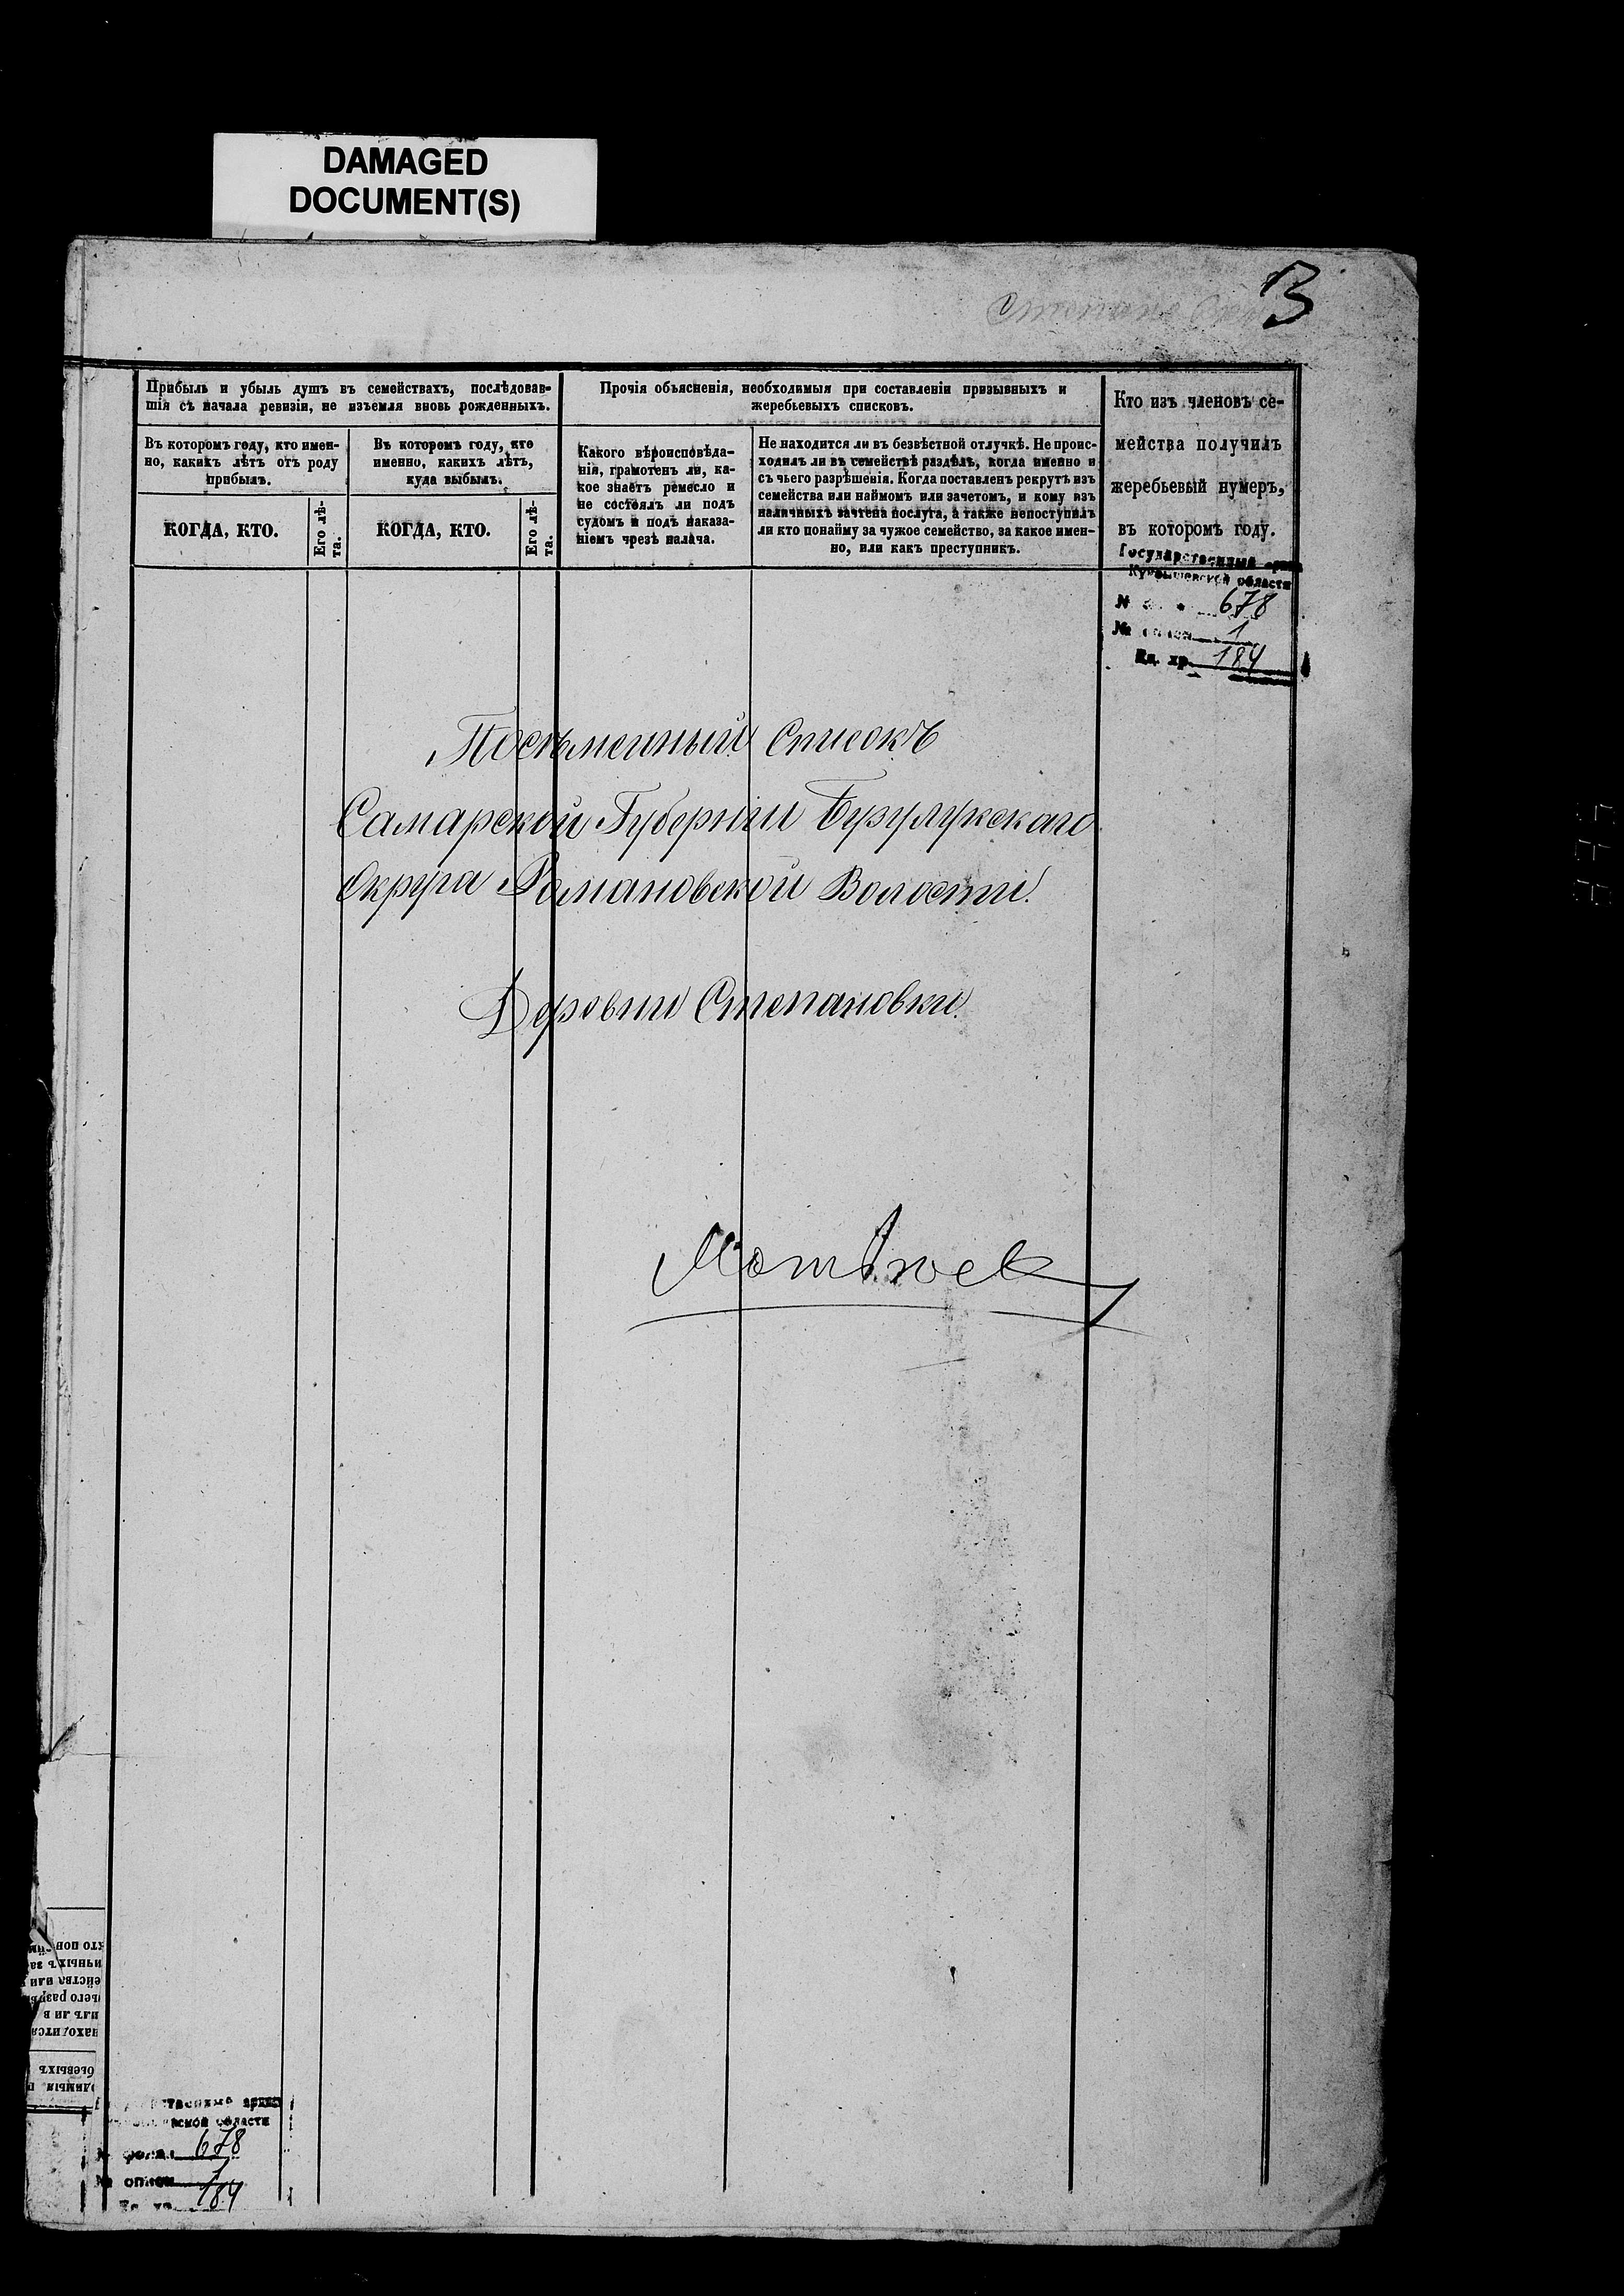 DAMAGED
DOCUMENT(S)
3
Прибыль и убыль душъ въ семействахъ, послѣдовав-
шія съ начала ревизіи, не изъемля вновь рожденныхъ.
Въ которомъ году, кто имен-
но, какихъ лѣтъ отъ роду
прибылъ.
КОГДА, КТО.
Его лѣ-
та.
Въ которомъ году, кто
именно, какихъ лѣтъ,
куда выбылъ.
КОГДА, КТО.
Его лѣ-
та.
Прочія объясненія, необходимыя при составленіи призывныхъ и
жеребьевыхъ списковъ.
Какого вѣроисповѣда-
нія, грамотенъ ли, ка-
кое знаетъ ремесло и
не состоялъ ли подъ
судомъ и подъ наказа-
ніемъ чрезъ палача.
Не находится ли въ безвѣстной отлучкѣ. Не проис-
ходилъ ли въ семействѣ раздѣлъ, когда именно и
съ чьего разрѣшенія. Когда поставленъ рекрутъ изъ
семейства или наймомъ или зачетомъ, и кому изъ
наличныхъ зачтена послуга, а также непоступилъ
ли кто понайму за чужое семейство, за какое имен-
но, или какъ преступникъ.
Кто изъ членовъ се-
мейства получилъ
жеребьевый нумеръ,
въ которомъ году.
Государственный архив
Куйбышевской области
№ 678
№ описи 1
Ед. хр. 184
Посѣмейный Списокъ
Самарской Губерніи Бузулукскаго
Округа Романовской Волости.
Деревни Степановки.
678
№ описи 1
184